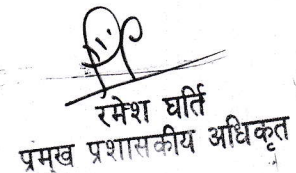 रमेश घर्ति
प्रमख प्रशासकीय अधिकृत